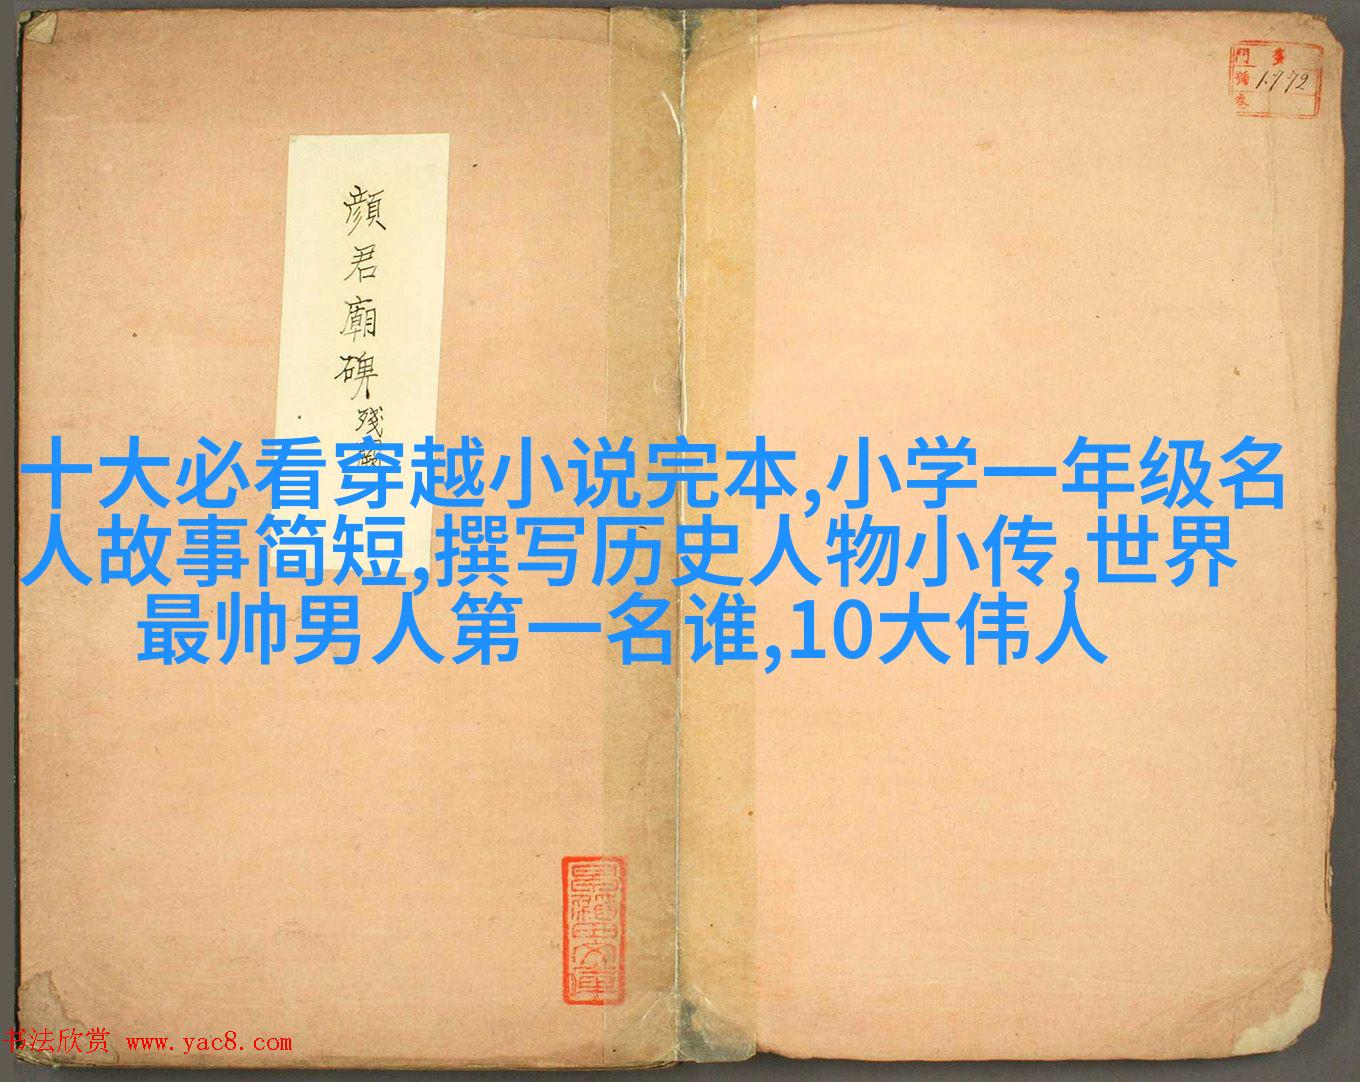 顔君廟碑残
門
號1772
十大必看穿越小说完本,小学一年级名
人故事简短,撰写历史人物小传,世界
最帅男人第一名谁,10大伟人
书法欣赏 www.yac8.com